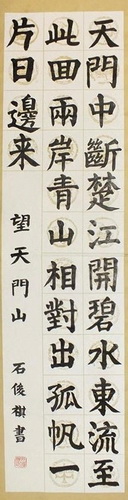 天門中斷楚江開碧水東流至
此回兩岸青山相對出孤帆一
片日邊来
望天門山　石俊樹書